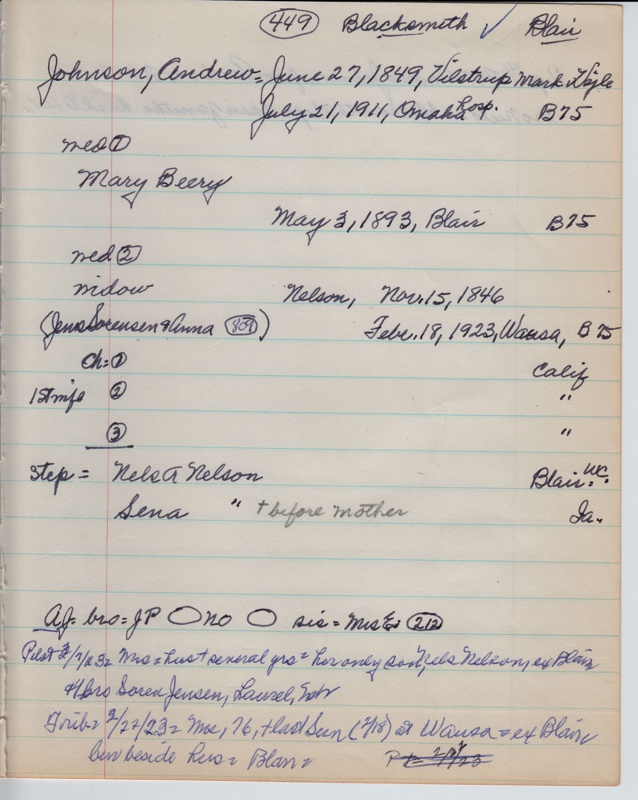 449 Blacksmith ✓ Blair
Johnson, Andrew = June 27, 1849, Vilstrup Mark
July 21, 1911, Omaha Hosp. B75
med ①
Mary Beery
May 3, 1893, Blair B75
med ②
widow Nelson, Nov. 15, 1846
(Jens Sorensen & Anna 809) Febr. 18, 1923, Wausa, B75
Ch = ① Calif
1st wife ② "
③ "
Step = Nels A Nelson Blair W.C.
Sena " + before mother Ia.
AJ = bro = JP no sis = Mrs E 212
Pilot 2/ /23 = Mrs = hus + several yrs = her only son, Nels Nelson, ex Blair
bro Soren Jensen, Laurel, Nebr
Trib = 2/22/23 = Mrs, 76, + last Sun (2/18) at Wausa = ex Blair
bur beside hus = Blair =